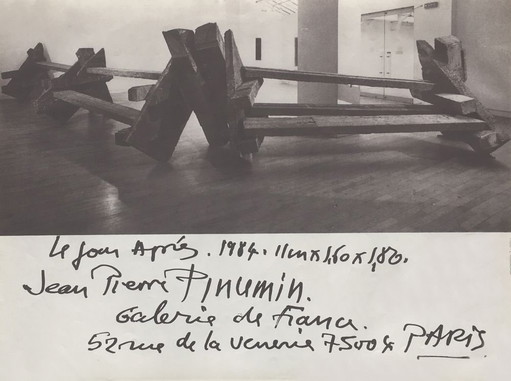 Le jour Après. 1984. 11m x 1,60 x 1,80.
Jean Pierre Pinumin.
Galerie de France.
52 rue de la Venerie 75004 PARIS